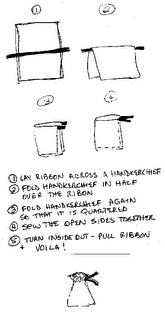 1
2
3
4
1 LAY RIBBON ACROSS A HANDKERCHIEF
2 FOLD HANDKERCHIEF IN HALF
OVER THE RIBON
3 FOLD HANDKERCHIEF AGAIN
SO THAT IT IS QUARTERED
4 SEW THE OPEN SIDES TOGETHER
5 TURN INSIDE OUT - PULL RIBBON
+ VOILA!